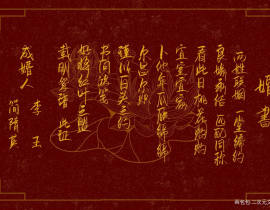 婚書
两姓联姻 一堂缔约
良缘永结 匹配同称
看此日桃花灼灼
宜室宜家
卜他年瓜瓞绵绵
尔昌尔炽
谨以白头之约
书向鸿笺
好将红叶之盟
载明鸳谱 此证
成婚人 李玉
简隋英